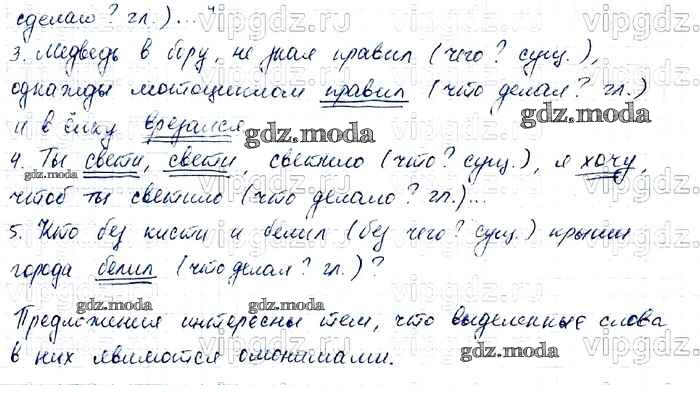 сделало? гл.)..."
3. Медведь в бору, не зная правил (чего? сущ.),
однажды мотоциклом правил (что делал? гл.)
и в ёлку врезался.
4. Ты свети, свети, светило (что? сущ.), я хочу,
чтоб ты светило (что делало? гл.)...
5. Кто без кисти и белил (без чего? сущ.) крыши
города белил (что делал? гл.)?
Предложения интересны тем, что выделенные слова
в них являются омонимами.
vipgdz.ru
gdz.moda